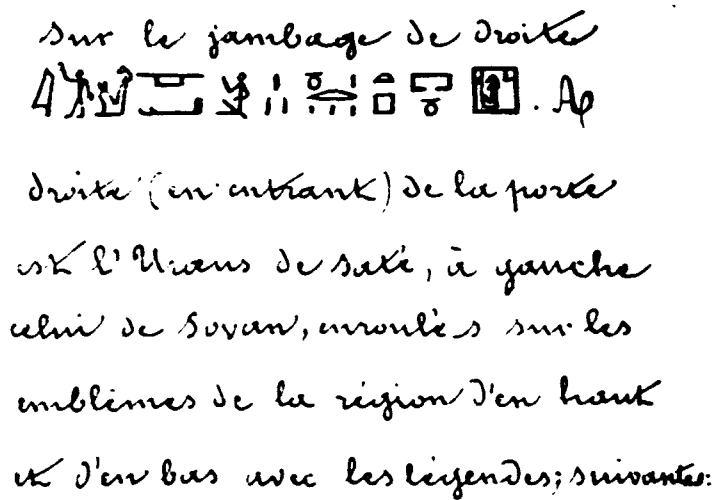 sur le jambage de droite
. A
droite (en entrant) de la porte
est l'Uræus de saté, à gauche
celui de Sovan, enroulés sur les
emblèmes de la région d'en haut
et d'en bas avec les légendes; suivantes: